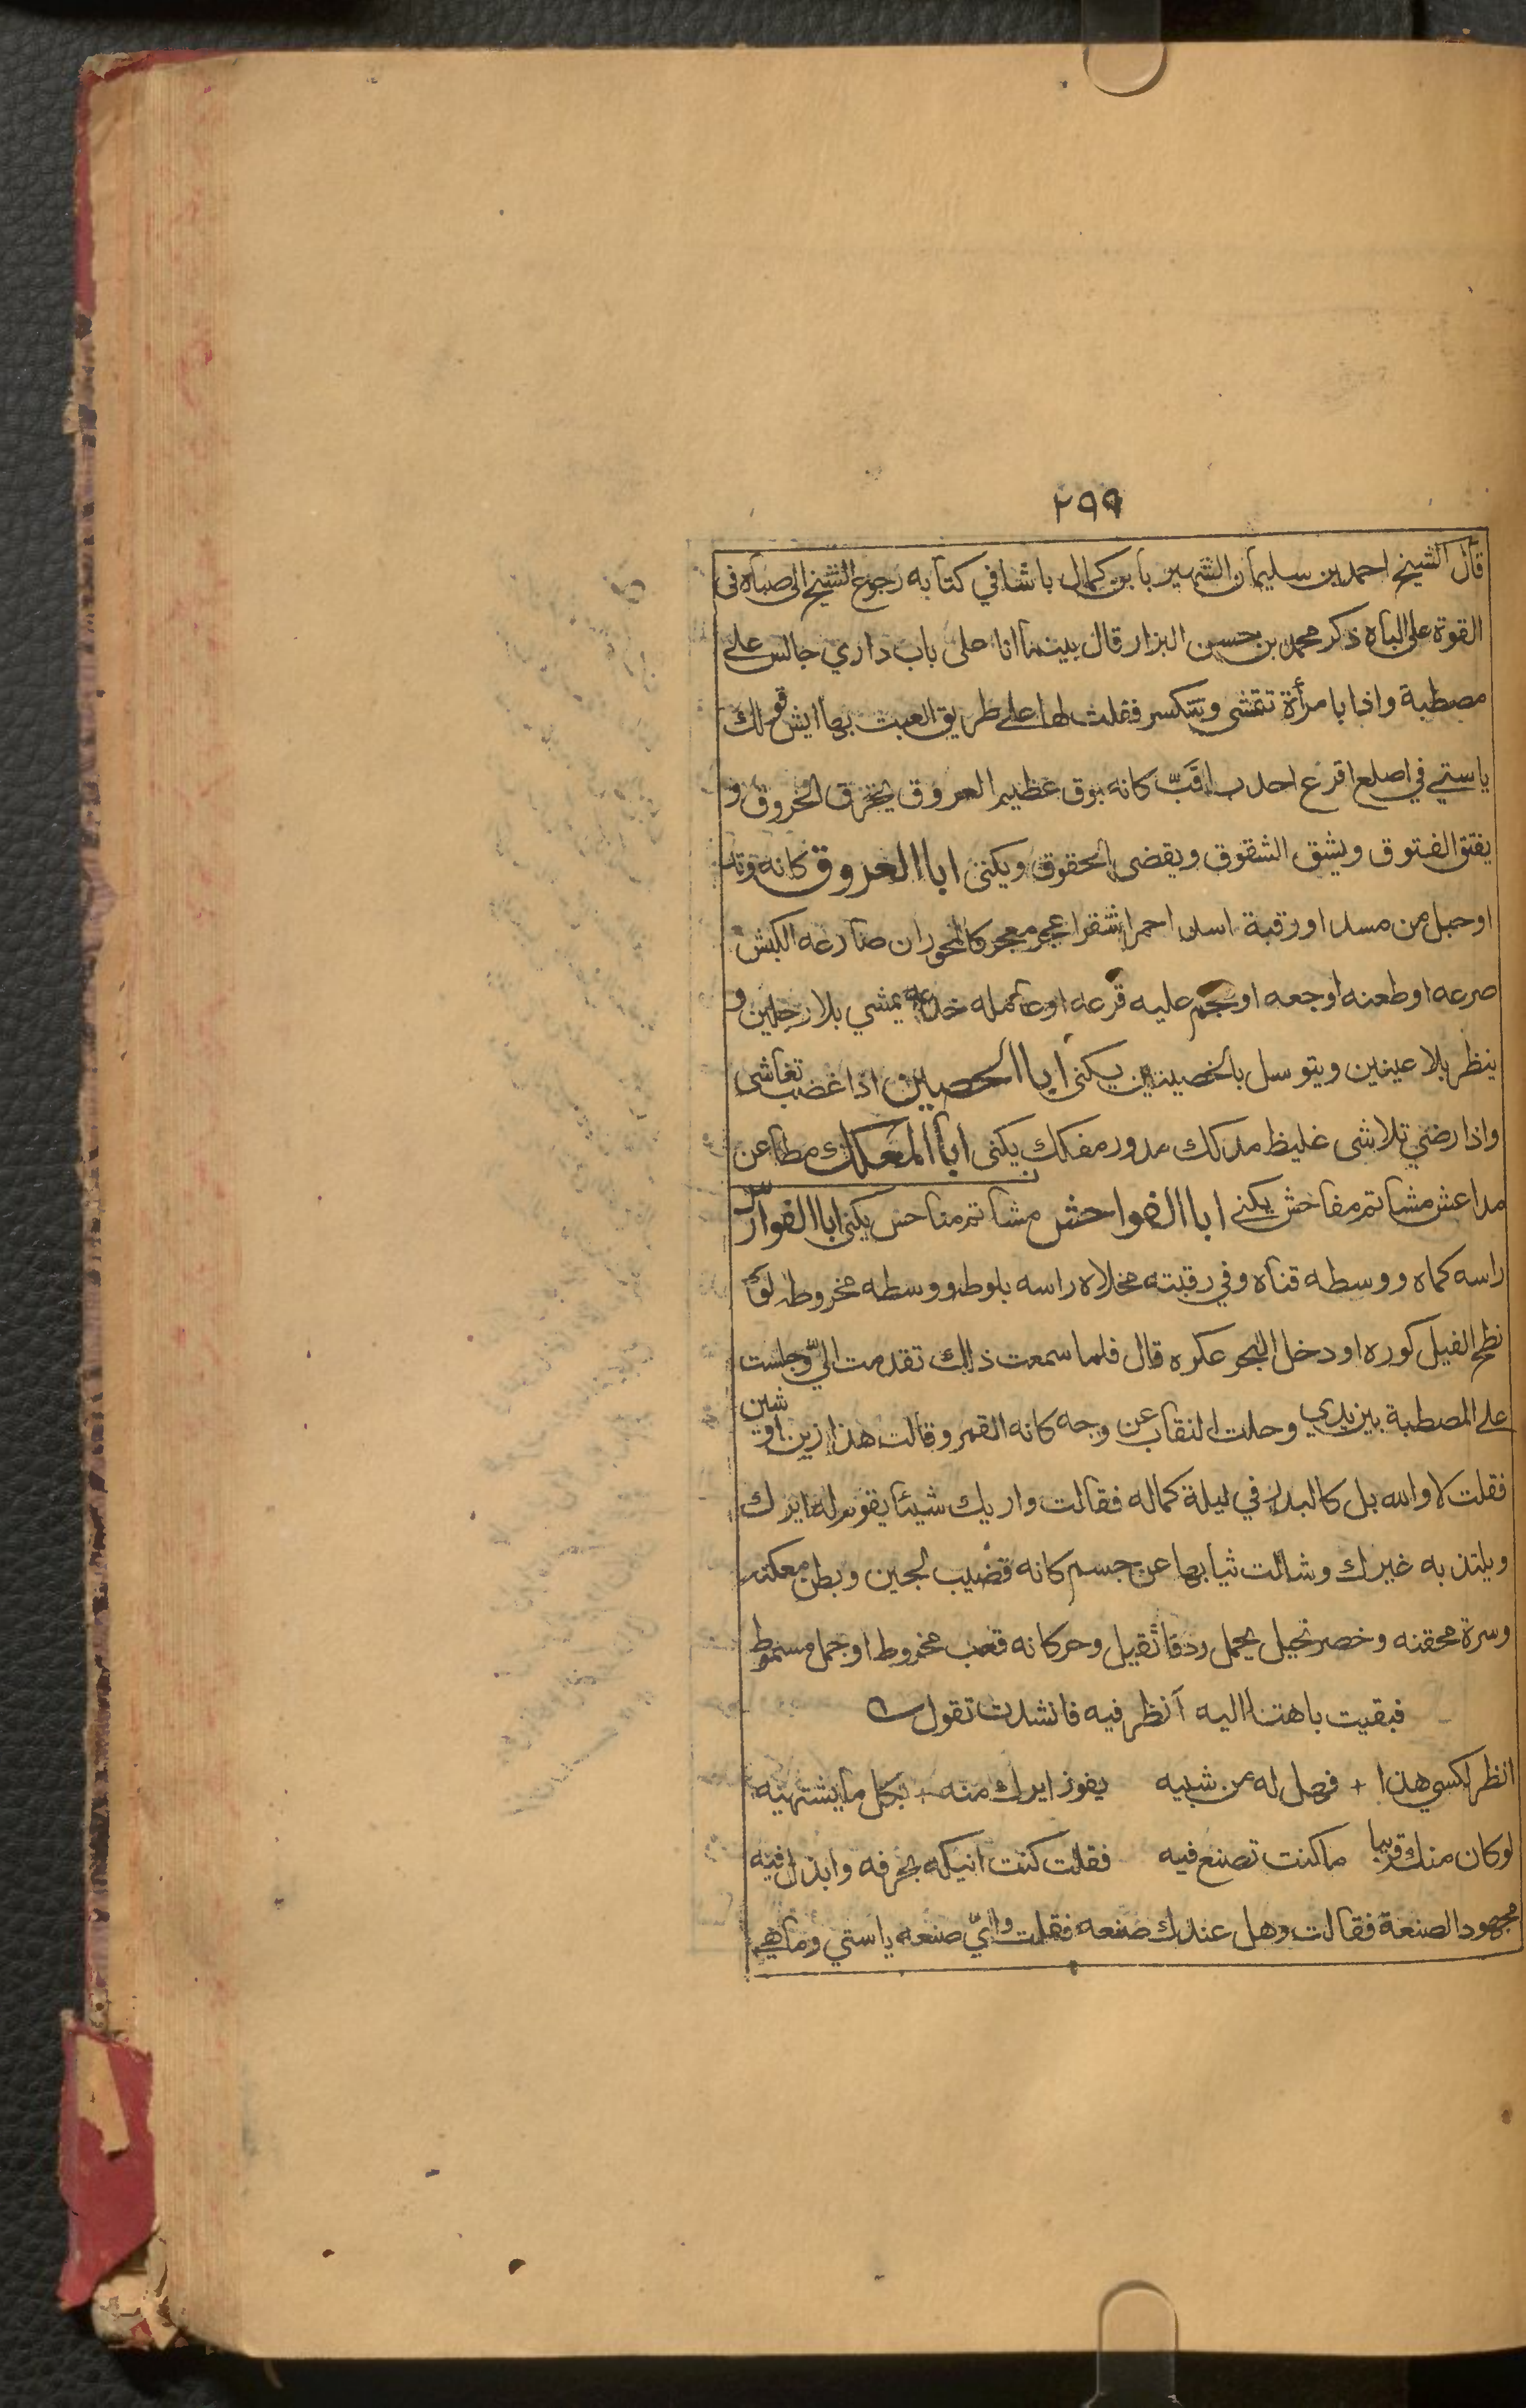 ٢٩٩
قال الشيخ احمد بن سليمان الشهير بابن كمال باشا في كتابه رجوع الشيخ الى صباه فى
القوة على الباه ذكر محمد بن حسن البزار قال بينما انا على باب داري جالس على
مصطبة واذا بامرأة تتمشى وتتكسر فقلت لها على طريق العبث بها ايش قولك
ياستي في اصلع اقرع احدب اقَبّ كانه بوق عظيم العروق يخرق الخروق و
يفتق الفتوق ويشق الشقوق ويقضى الحقوق ويكنى ابا العروق كانه وتد
او حبل من مسد او رقبة اسد احمر اشقر اعجر معجر كالمحور ان صارعه الكبش
صرعه او طعنه اوجعه او عليه قرعه او عامله خدعه يمشي بلا رجلين و
ينظر بلا عينين ويتوسل بالخصيتين يكنى ابا الحصين اذا غضب تغاشى
واذا رضي تلاشى غليظ مدكك مدور مفكك يكنى ابا المعكك مطاعن
مداعش مشاتم مفاحش يكنى ابا الفواحش مشاتم يكنى ابا الفوارس
راسه كماه ووسطه قناه وفي رقبته مخلاه راسه بلوط ووسطه مخروط لو
نطح الفيل كوره او دخل البحر عكره قال فلما سمعت ذلك تقدمت اليّ وجلست
على المصطبة بين يدي وحلت النقاب عن وجه كانه القمر وقالت هذا زين او شين
فقلت لا والله بل كالبدر في ليلة كماله فقالت واريك شيئا يقوم له ايرك
ويلتذ به غيرك وشالت ثيابها عن جسم كانه قضيب لجين وبطن معكنه
وسرة محقنه وخصر نحيل يحمل ردفا ثقيل وحر كانه قعب مخروط او جمل مسموط
فبقيت باهتا اليه آنظر فيه فانشدت تقول
انظر لكسي هذا + فهل له من شبيه يفوز ايرك منه + بكل ما يشتهيه
لو كان منك قريبا ما كنت تصنع فيه فقلت كنت انيكه بحرفه وابذل فيه
مجهود الصنعة فقالت وهل عندك صنعه فقلت وايّ صنعه ياستي وما هي